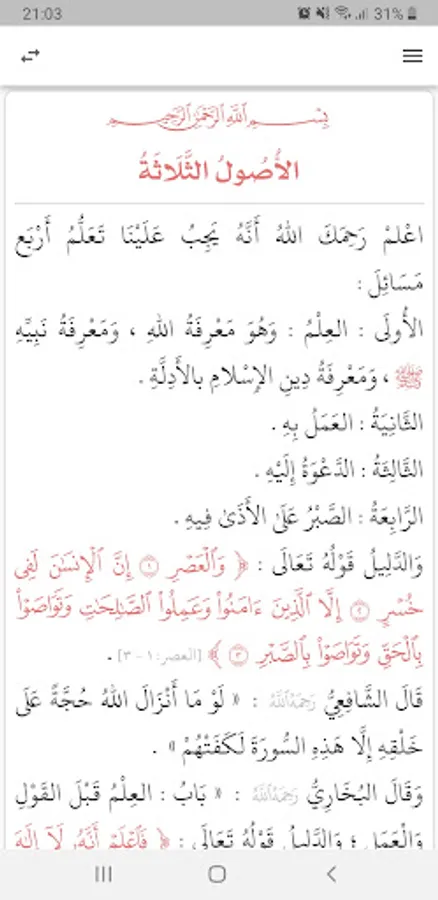 21:03 31%
بِسْمِ اللَّهِ الرَّحْمَٰنِ الرَّحِيمِ
الأُصُولُ الثَّلَاثَةُ
اعْلَمْ رَحِمَكَ اللهُ أَنَّهُ يَجِبُ عَلَيْنَا تَعَلُّمُ أَرْبَعِ
مَسَائِلَ :
الأُولَى : العِلْمُ : وَهُوَ مَعْرِفَةُ اللهِ ، وَمَعْرِفَةُ نَبِيِّهِ
ﷺ ، وَمَعْرِفَةُ دِينِ الإِسْلَامِ بالأَدِلَّةِ .
الثَّانِيَةُ : العَمَلُ بِهِ .
الثَّالِثَةُ : الدَّعْوَةُ إِلَيْهِ .
الرَّابِعَةُ : الصَّبْرُ عَلَىٰ الأَذَىٰ فِيهِ .
وَالدَّلِيلُ قَوْلُهُ تَعَالَى : ﴿ وَٱلْعَصْرِ ۝١ إِنَّ ٱلْإِنسَٰنَ لَفِى
خُسْرٍ ۝٢ إِلَّا ٱلَّذِينَ ءَامَنُوا۟ وَعَمِلُوا۟ ٱلصَّٰلِحَٰتِ وَتَوَاصَوْا۟
بِٱلْحَقِّ وَتَوَاصَوْا۟ بِٱلصَّبْرِ ۝٣ ﴾ [العصر: ١ - ٣] .
قَالَ الشَّافِعِيُّ رَحِمَهُ ٱللَّهُ : « لَوْ مَا أَنْزَالَ اللهُ حُجَّةً عَلَى
خَلْقِهِ إِلَّا هَذِهِ السُّورَةَ لَكَفَتْهُمْ » .
وَقَالَ البُخَارِيُّ رَحِمَهُ ٱللَّهُ : « بَابُ : العِلْمُ قَبْلَ القَوْلِ
وَالْعَمَلِ ؛ وَالدَّلِيلُ قَوْلُهُ تَعَالَى : ﴿ فَٱعْلَمْ أَنَّهُۥ لَآ إِلَٰهَ